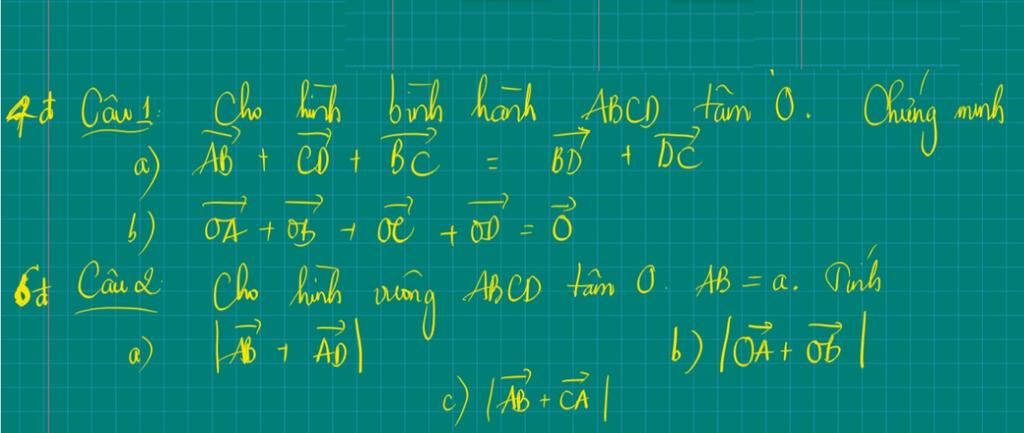 4đ Câu 1: Cho hình bình hành ABCD tâm O. Chứng minh
a) $\overrightarrow{AB} + \overrightarrow{CD} + \overrightarrow{BC} = \overrightarrow{BD} + \overrightarrow{DC}$
b) $\overrightarrow{OA} + \overrightarrow{OB} + \overrightarrow{OC} + \overrightarrow{OD} = \vec{O}$
6đ Câu 2: Cho hình vuông ABCD tâm O. AB = a. Tính
a) $|\overrightarrow{AB} + \overrightarrow{AD}|$ b) $|\overrightarrow{OA} + \overrightarrow{OB}|$
c) $|\overrightarrow{AB} + \overrightarrow{CA}|$